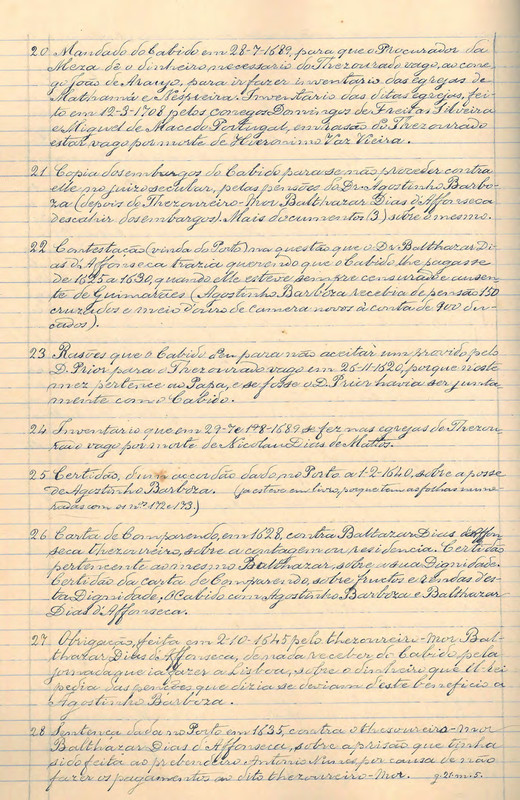 20 Mandado do Cabido em 28-7-1689, para que o Procurador da
Meza dê o dinheiro necessario do Thezourado vago, ao cone-
go João de Araujo, para ir fazer inventario das egrejas de
Mathamá e Nespereira. Inventario das ditas egrejas, fei-
to em 12-3-1708 pelos conegos Domingos de Freitas Silveira
e Miguel de Macedo Portugal, em rasão do Thezourado
estar vago por morte de Hieronimo Vaz Vieira.
21 Copia dos embargos do Cabido para se não proceder contra
elle no juizo secular, pelas pensões do Dr. Agostinho Barbo-
za (depois do Thezoureiro-Mor Balthazar Dias d'Affonseca
descahir dos embargos). Mais documentos (3) sobre o mesmo.
22 Contestação (vinda do Porto) na questão que o Dr. Balthazar Di-
as d'Affonseca trazia querendo que o Cabido lhe pagasse
de 1625 a 1630, quando elle esteve sempre censurado e ausen-
te de Guimarães (Agostinho Barboza recebia de pensão 150
cruzados e meio d'ouro de camera novos à conta de 400 du-
cados).
23 Rasões que o Cabido deu para não aceitar um provido pelo
D. Prior para o Thezourado vago em 26-11-1620, porque n'este
mez pertence ao Papa, e se fosse o D. Prior havia ser junta
mente com o Cabido.
24 Inventario que em 29-7 e 1º-8-1689 se fez nas egrejas do Thezou-
rado vago por morte de Nicolau Dias de Mattos.
25 Certidão, d'um accordão dado no Porto a 1-2-1640, sobre a posse
de Agostinho Barboza. (ja esteve em livro, porque tem as folhas nume-
radas com os nºs 172 e 173.)
26 Carta de Comparendo, em 1628, contra Balthazar Dias d'Affon
seca thezoureiro, sobre a contagem ou residencia. Certidão
pertencente ao mesmo Balthazar, sobre a sua Dignidade.
Certidão da carta de Comparendo, sobre fructos e rendas d'es
ta Dignidade, O Cabido com Agostinho Barboza e Balthazar
Dias d'Affonseca.
27 Obrigação, feita em 2-10-1645 pelo thezoureiro-mor Bal-
thazar Dias d'Affonseca, de nada receber do Cabido, pela
jornada que ia fazer a Lisboa, sobre o dinheiro que El-Rei
pedia das pensões que dizia se deviam d'este beneficio a
Agostinho Barboza.
28 Sentença dada no Porto em 1635, contra o thesoureiro-mor
Balthazar Dias d'Affonseca, sobre a prisão que tinha
sido feita ao prebendeiro Antonio Nunes por causa de não
fazer os pagamentos ao dito thezoureiro-Mor.